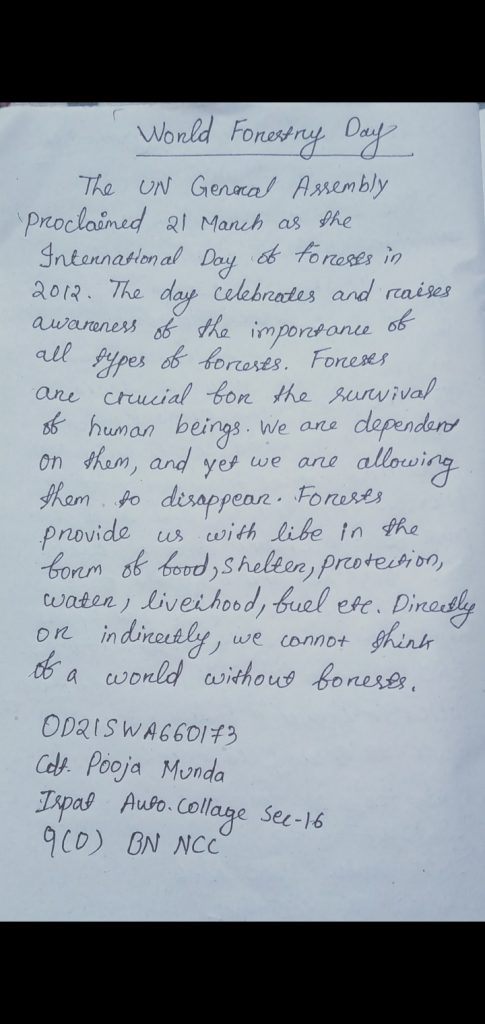 World Forestry Day
The UN General Assembly
proclaimed 21 March as the
International Day of forests in
2012. The day celebrates and raises
awareness of the importance of
all types of forests. Forests
are crucial for the survival
of human beings. We are dependent
on them, and yet we are allowing
them to disappear. Forests
provide us with life in the
form of food, shelter, protection,
water, livelihood, fuel etc. Directly
or indirectly, we cannot think
of a world without forests.
OD21SWA660173
Cdt. Pooja Munda
Ispat Auto. Collage Sec-16
9(O) BN NCC